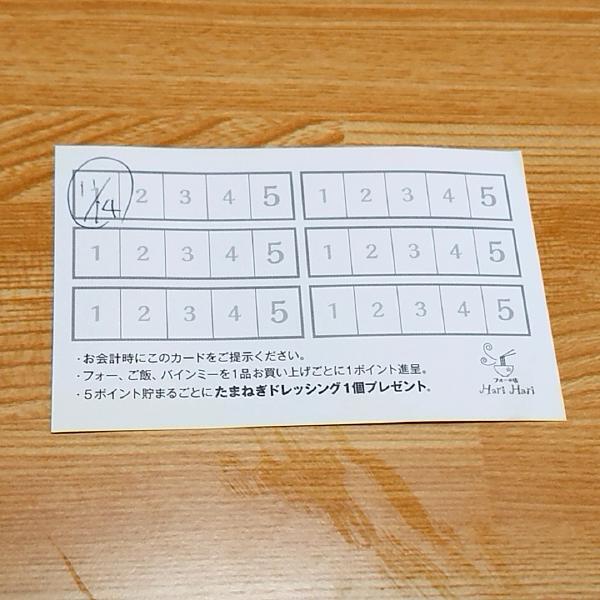 11/14 2 3 4 5 1 2 3 4 5
1 2 3 4 5 1 2 3 4 5
1 2 3 4 5 1 2 3 4 5
・お会計時にこのカードをご提示ください。
・フォー、ご飯、バインミーを1品お買い上げごとに1ポイント進呈。
・5ポイント貯まるごとにたまねぎドレッシング1個プレゼント。
Hari Hari